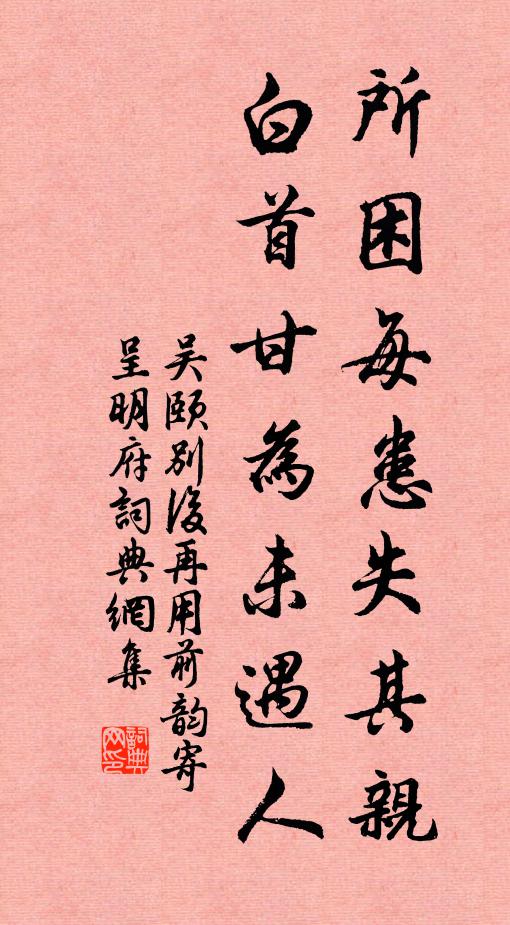 所困每患失其親
白首甘為未遇人
吴頤别後再用前韵寄
呈明府詞典網集
詞典
网印